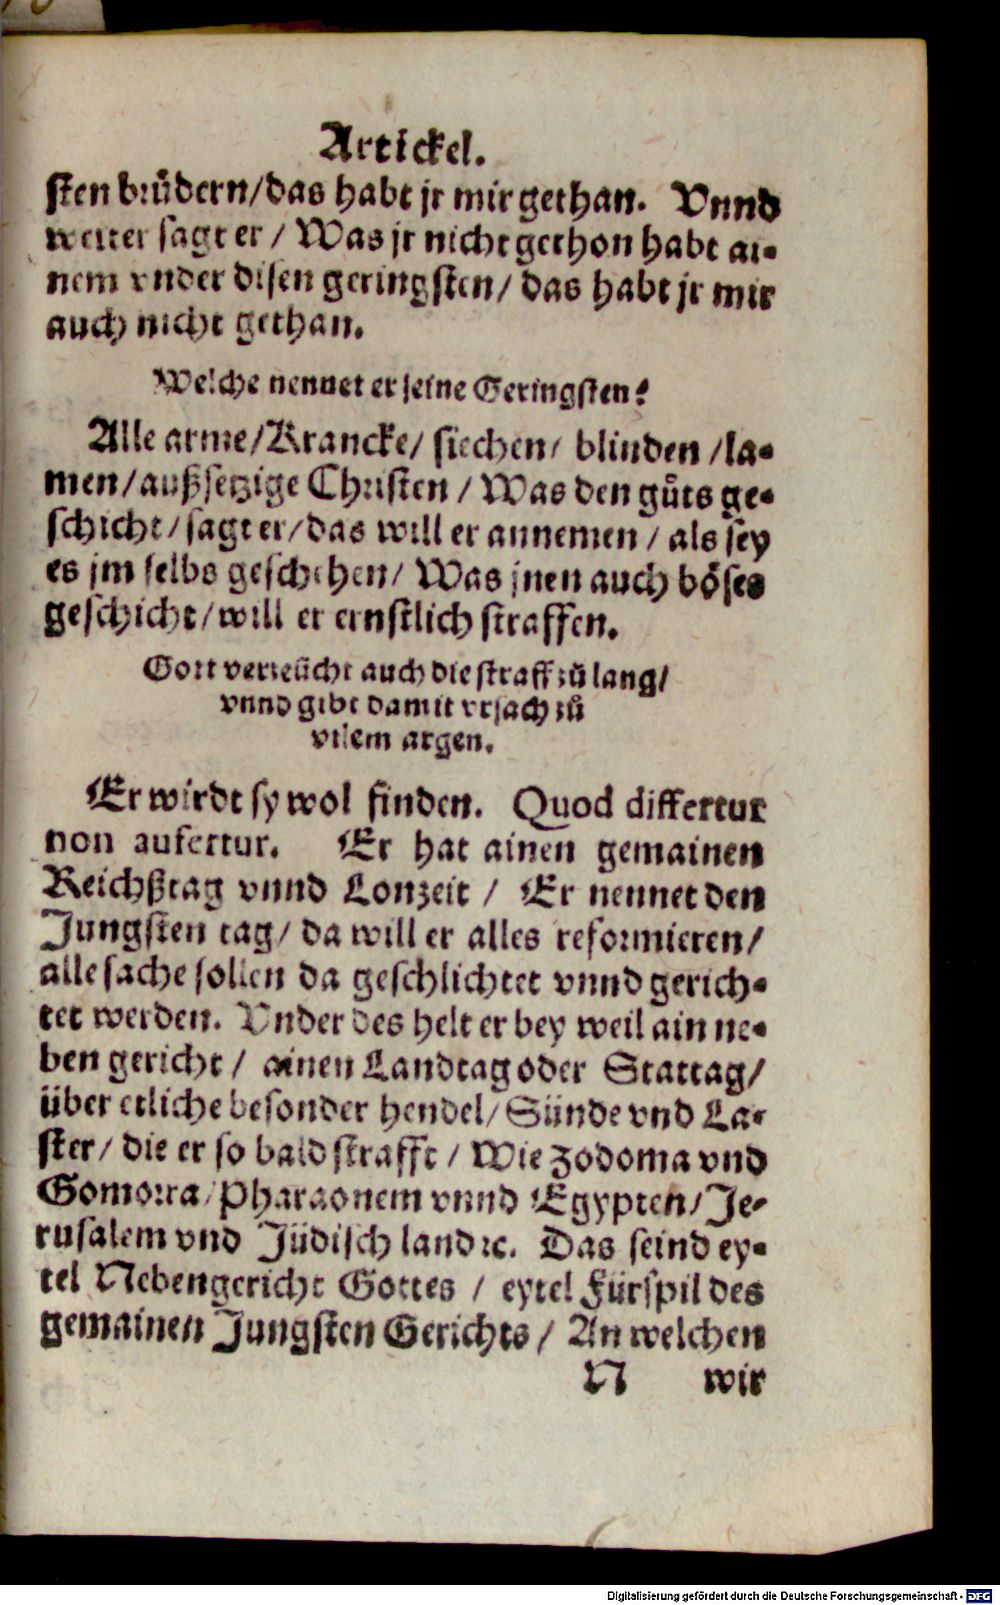 Artickel.
sten bruͤdern/das habt jr mir gethan. Vnnd
weiter sagt er / Was jr nicht gethon habt ai-
nem vnder disen geringsten/ das habt jr mir
auch nicht gethan.
Welche nennet er seine Geringsten?
Alle arme/Krancke/ siechen/ blinden /la-
men/außsetzige Christen / Was den guͤts ge-
schicht/sagt er/das will er annemen / als sey
es jm selbs geschehen/ Was jnen auch böses
geschicht/will er ernstlich straffen.
Gott verzeücht auch die straff zuͤ lang/
vnnd gibt damit vrsach zuͤ
vilem argen.
Er wirdt sy wol finden. Quod differtur
non aufertur. Er hat ainen gemainen
Reichßtag vnnd Lonzeit / Er nennet den
Jungsten tag/ da will er alles reformieren/
alle sache sollen da geschlichtet vnnd gerich-
tet werden. Vnder des helt er bey weil ain ne-
ben gericht / ainen Landtag oder Stattag/
über etliche besonder hendel/Sünde vnd La-
ster/ die er so bald strafft / Wie Zodoma vnd
Gomorra/Pharaonem vnnd Egypten/Je-
rusalem vnd Jüdisch land ꝛc. Das seind ey-
tel Nebengericht Gottes / eytel Fürspil des
gemainen Jungsten Gerichts/ An welchen
N wir
Digitalisierung gefördert durch die Deutsche Forschungsgemeinschaft - DFG